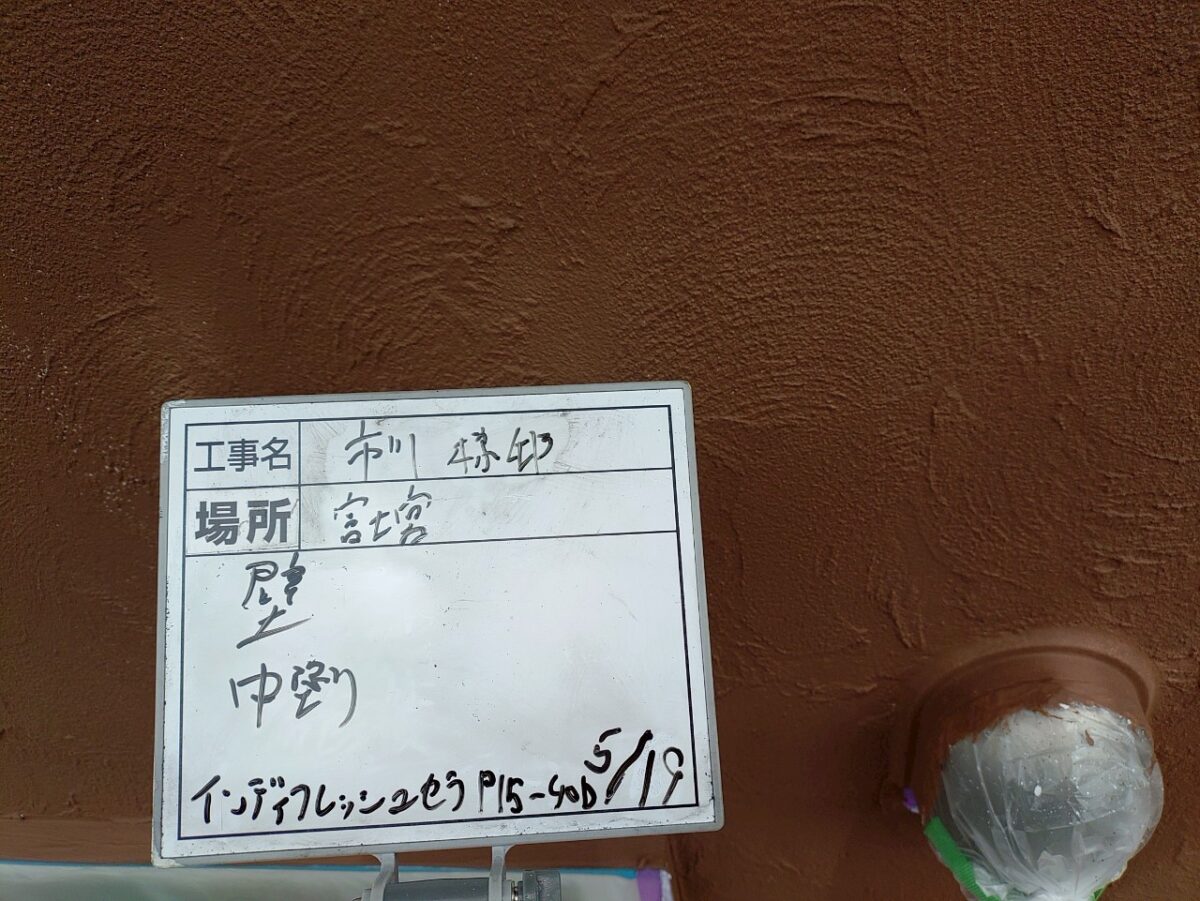 工事名 市川 様邸
場所 富士宮
壁
中塗り
インディフレッシュセラ P15-40D 5/19